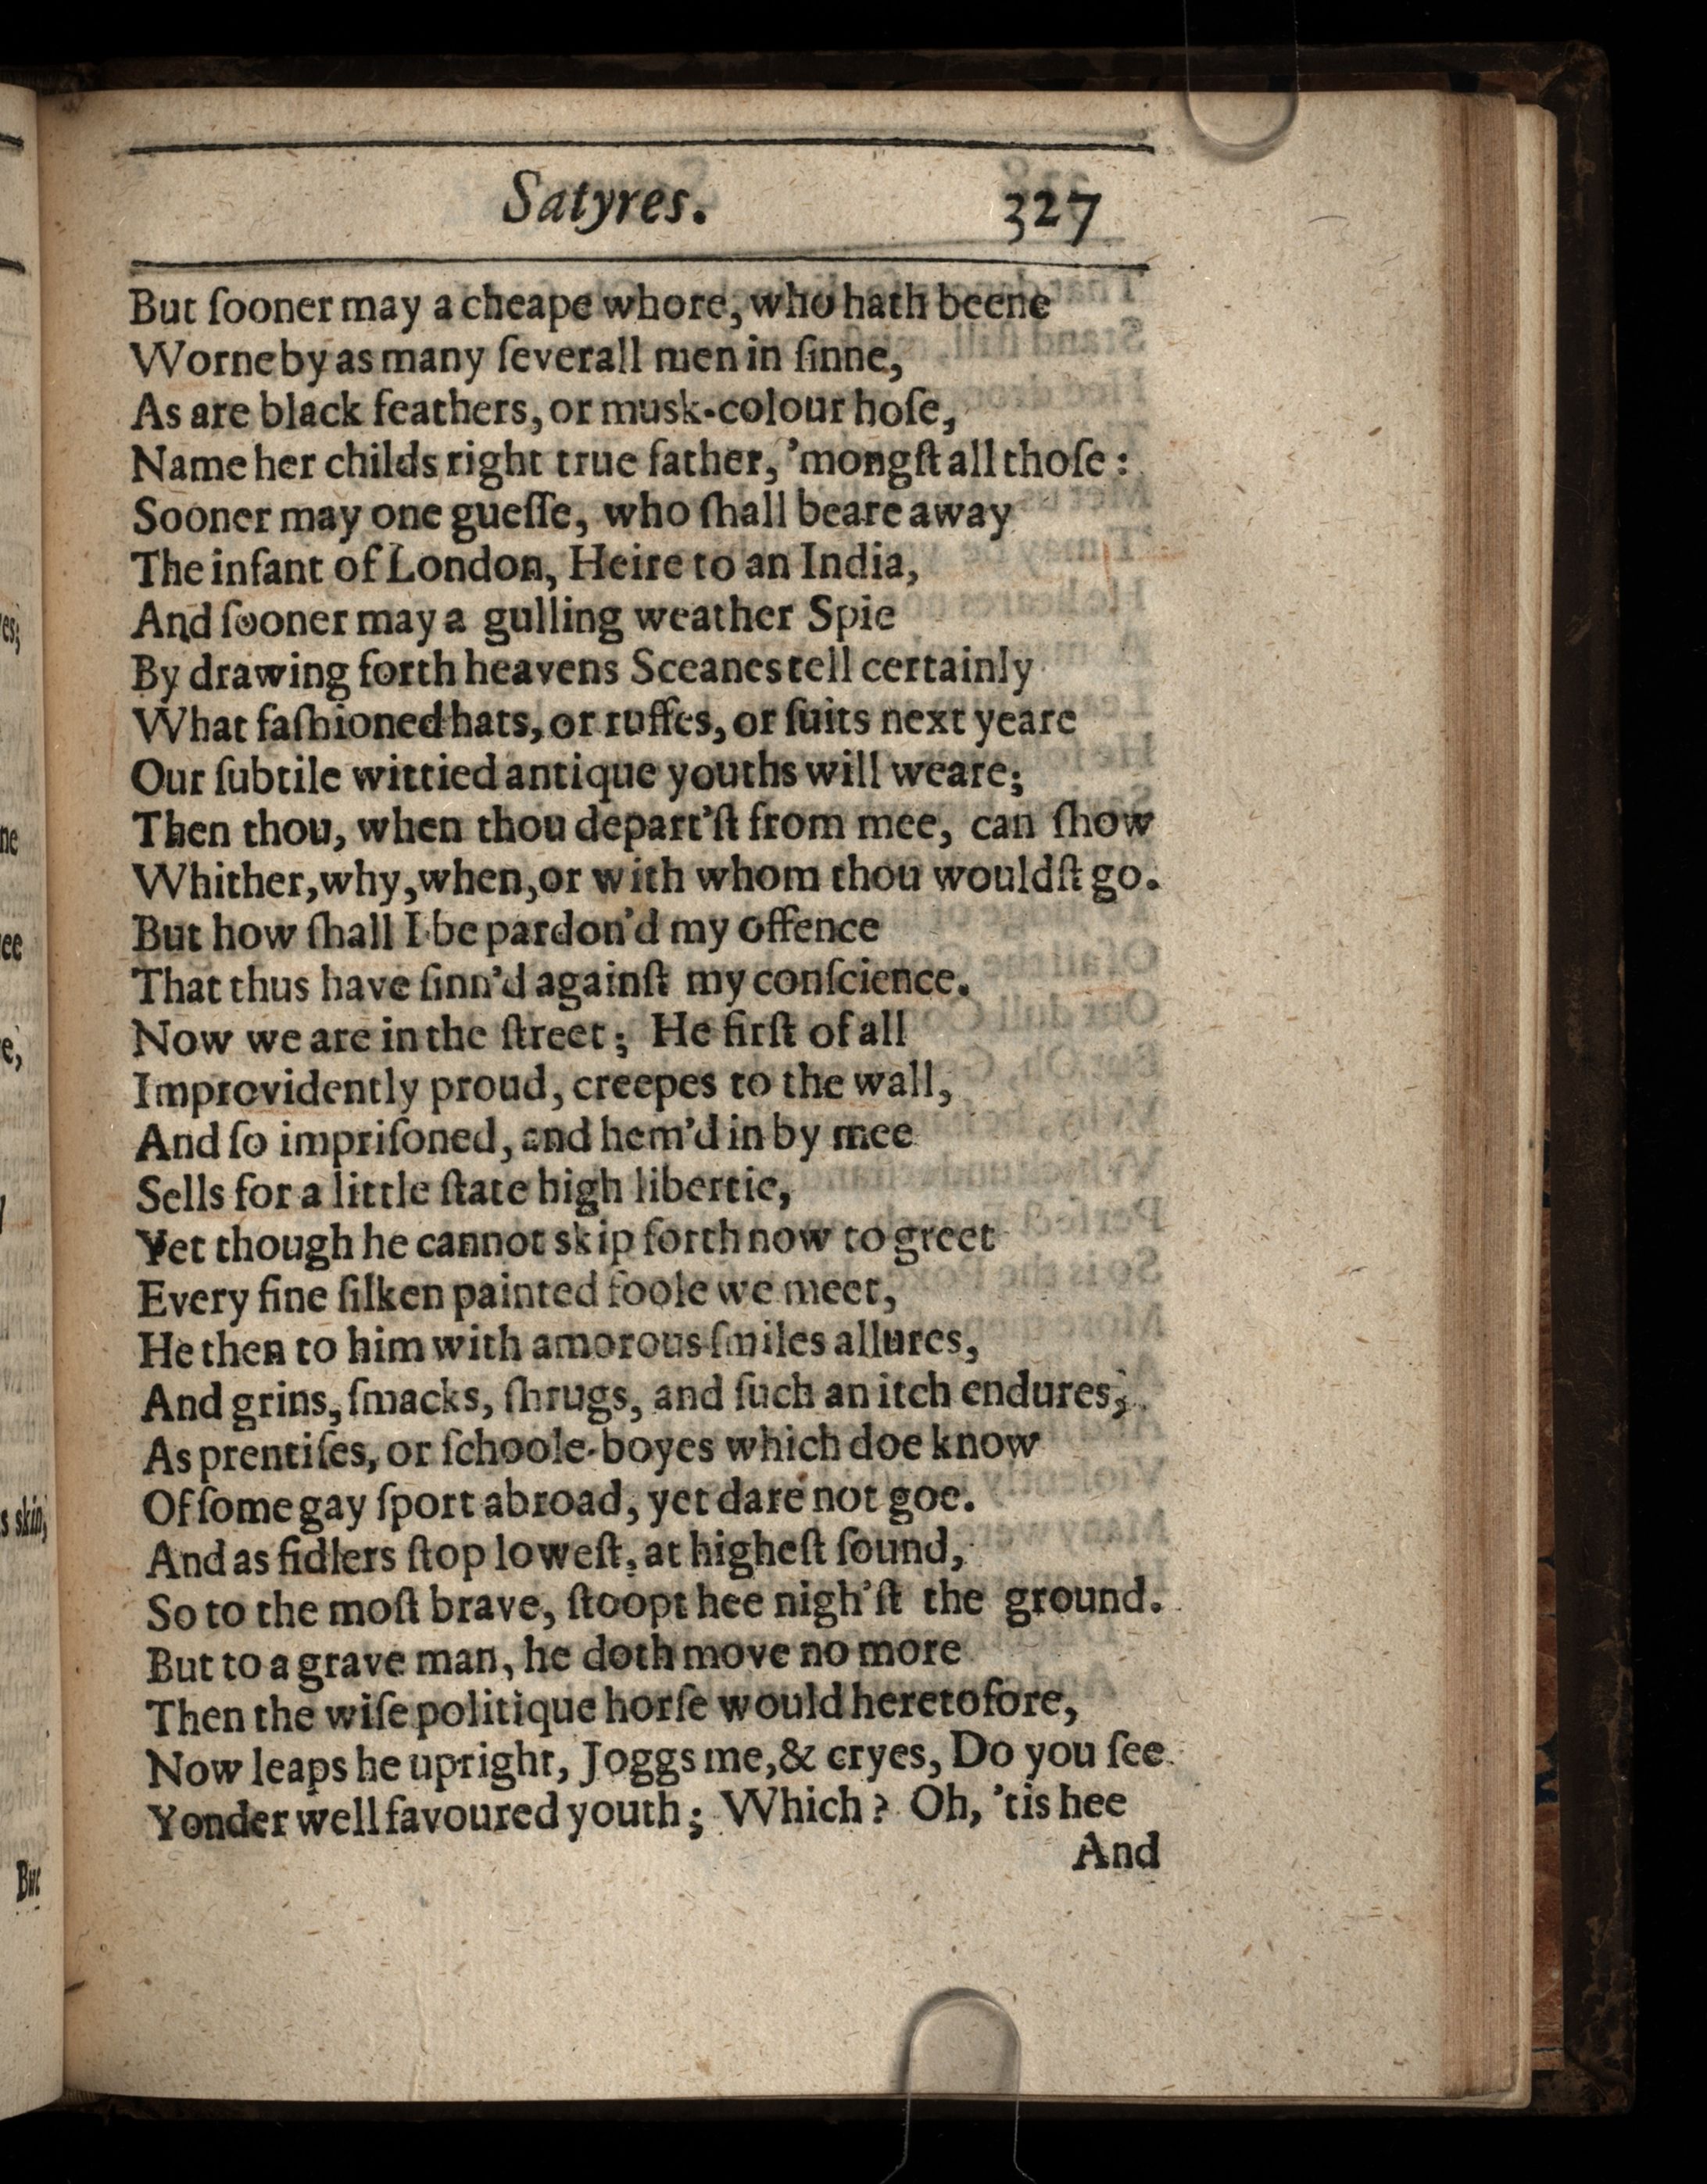 Satyres. 327
But ſooner may a cheape whore, who hath beene
Worne by as many ſeverall men in ſinne,
As are black feathers, or musk-colour hoſe,
Name her childs right true father, 'mongſt all thoſe:
Sooner may one gueſſe, who ſhall beare away
The infant of London, Heire to an India,
And ſooner may a gulling weather Spie
By drawing forth heavens Sceanes tell certainly
What faſhioned hats, or ruffes, or ſuits next yeare
Our ſubtile wittied antique youths will weare;
Then thou, when thou depart'ſt from mee, can ſhow
Whither, why, when, or with whom thou wouldſt go.
But how ſhall I be pardon'd my offence
That thus have ſinn'd againſt my conſcience.
Now we are in the ſtreet; He firſt of all
Improvidently proud, creepes to the wall,
And ſo impriſoned, and hem'd in by mee
Sells for a little ſtate high libertie,
Yet though he cannot skip forth now to greet
Every fine ſilken painted foole we meet,
He then to him with amorous ſmiles allures,
And grins, ſmacks, ſhrugs, and ſuch an itch endures;
As prentiſes, or ſchoole-boyes which doe know
Of ſome gay ſport abroad, yet dare not goe.
And as fidlers ſtop loweſt, at higheſt ſound,
So to the moſt brave, ſtoopt hee nigh'ſt the ground.
But to a grave man, he doth move no more
Then the wiſe politique horſe would heretofore,
Now leaps he upright, Joggs me, & cryes, Do you ſee
Yonder well favoured youth; Which? Oh, 'tis hee
And